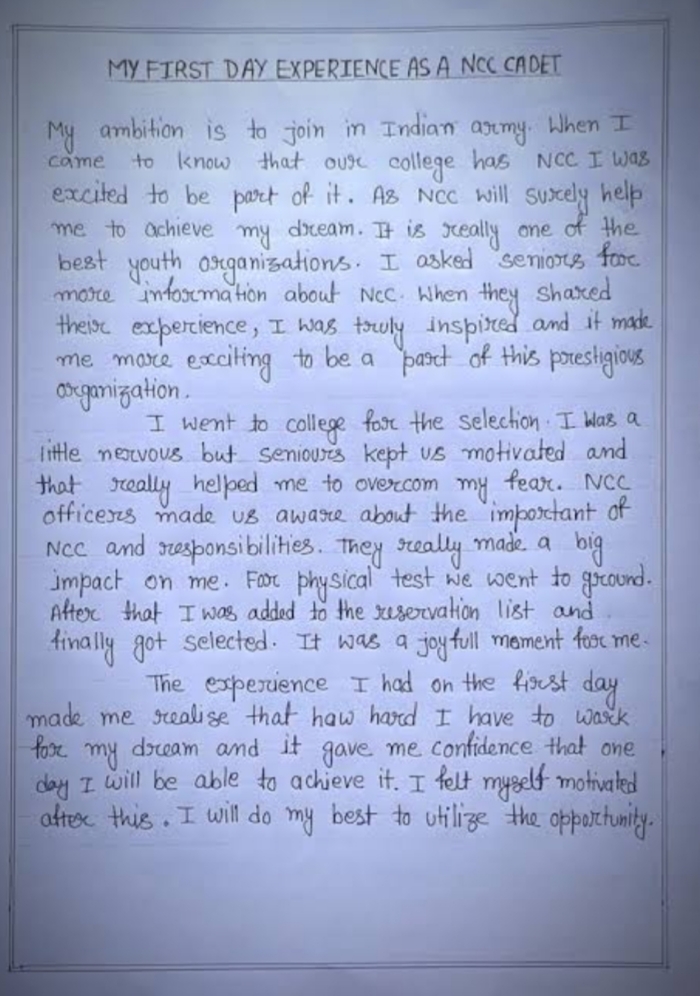 MY FIRST DAY EXPERIENCE AS A NCC CADET
My ambition is to join in Indian army. When I
came to know that our college has NCC I was
excited to be part of it. As NCC will surely help
me to achieve my dream. It is really one of the
best youth organizations. I asked seniors for
more information about NCC. When they shared
their experience, I was truly inspired and it made
me more exciting to be a part of this prestigious
organization.
I went to college for the selection. I was a
little nervous but seniours kept us motivated and
that really helped me to overcom my fear. NCC
officers made us aware about the important of
NCC and responsibilities. They really made a big
impact on me. For physical test we went to ground.
After that I was added to the reservation list and
finally got selected. It was a joyfull moment for me.
The experience I had on the first day
made me realise that haw hard I have to work
for my dream and it gave me confidence that one
day I will be able to achieve it. I felt myself motivated
after this. I will do my best to utilize the opportunity.